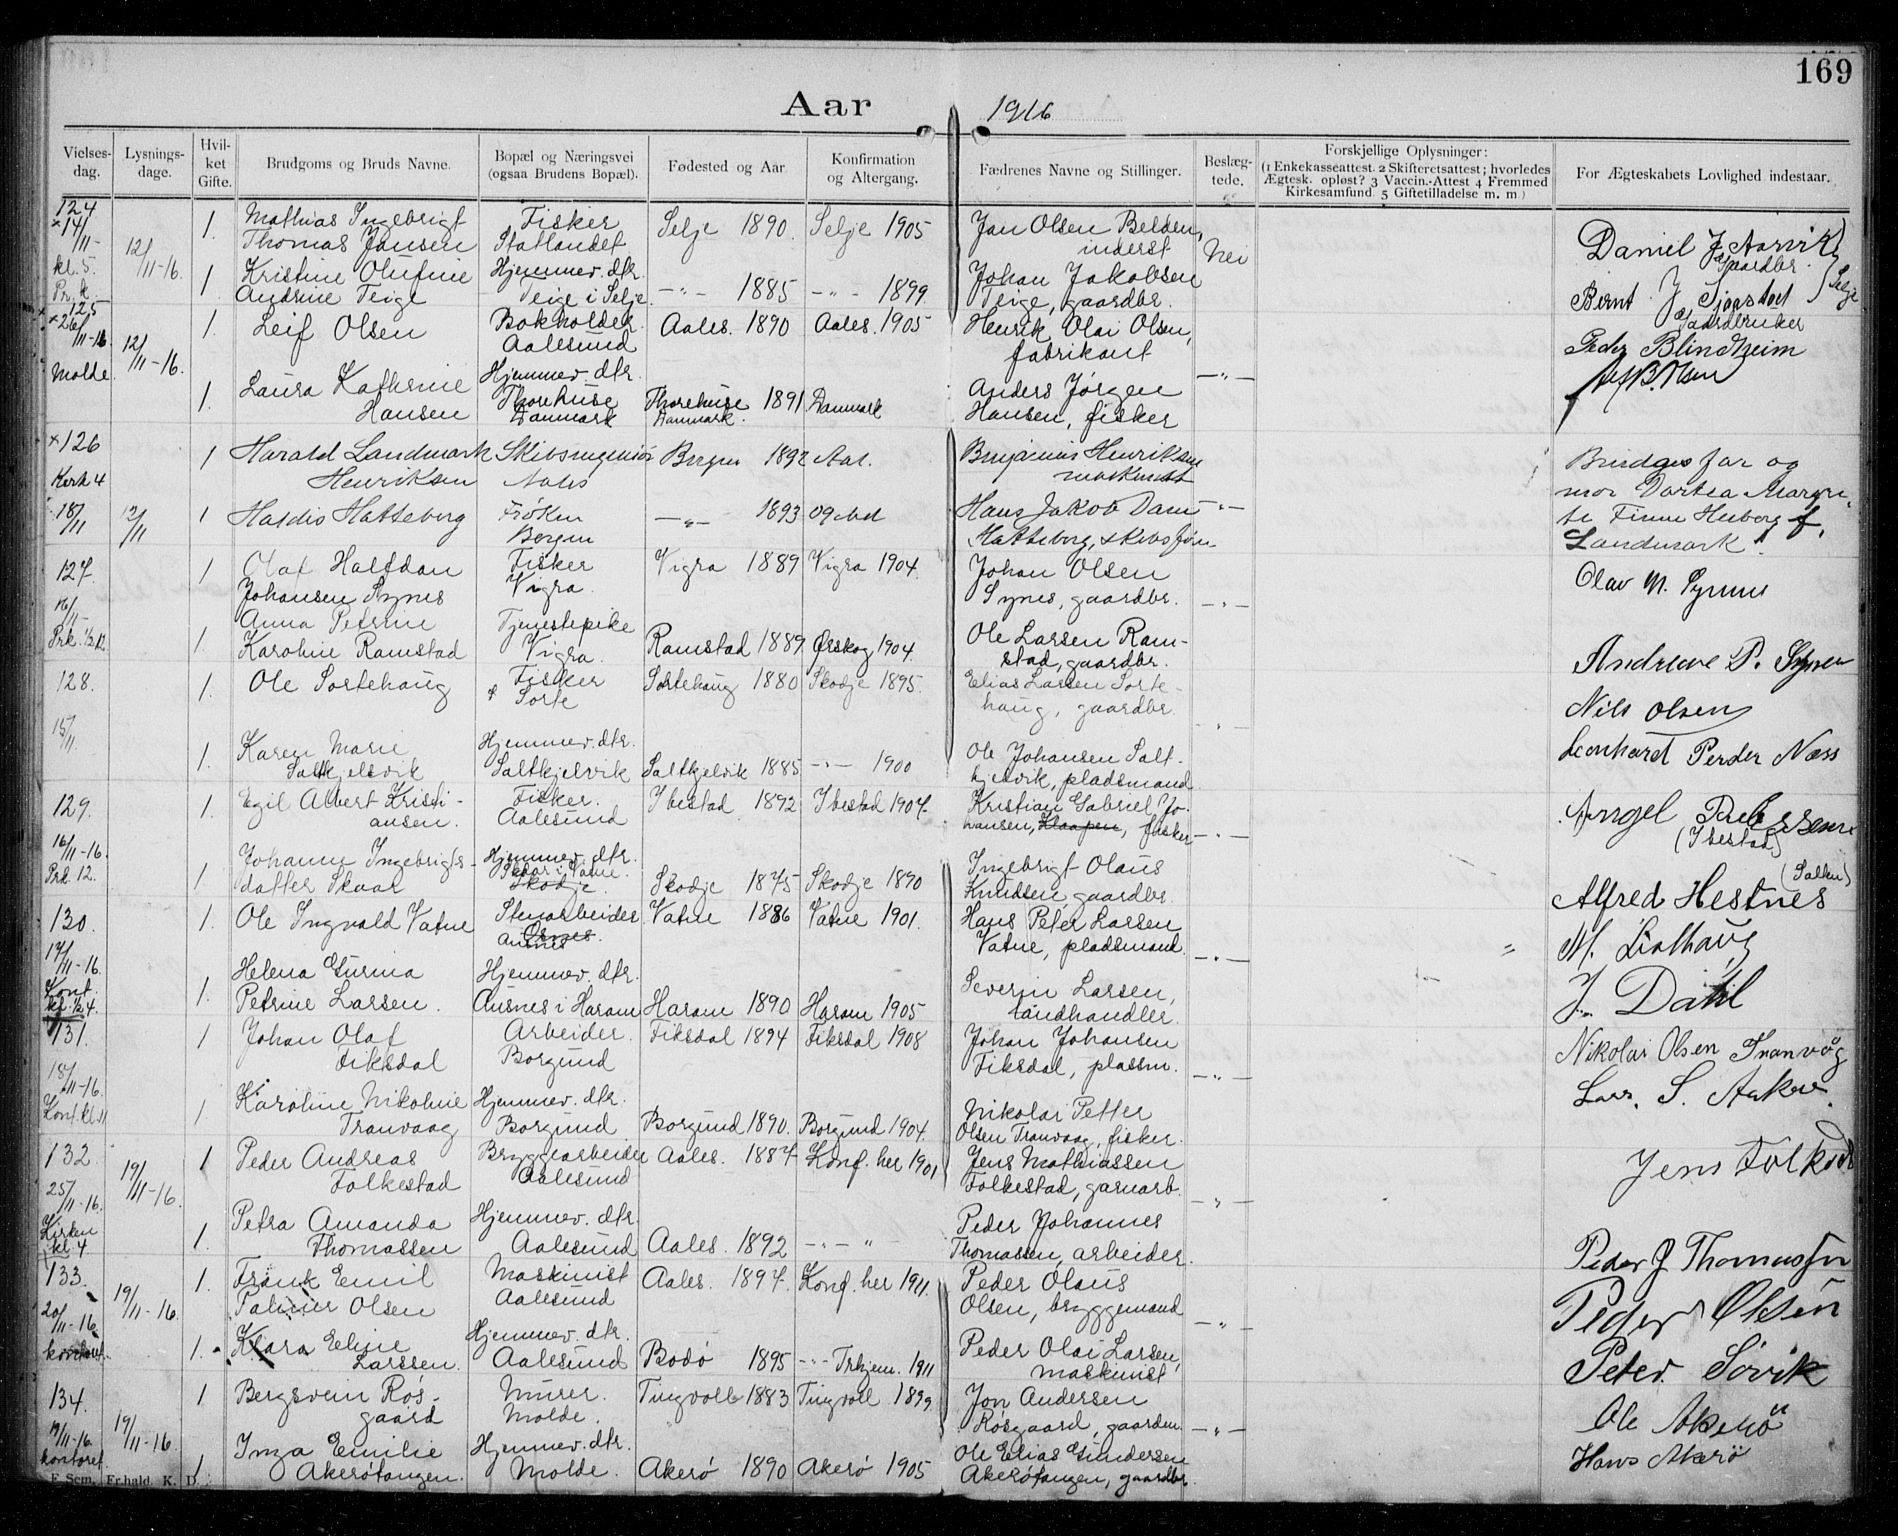 169
Aar 1916
Vielses-dag. Lysnings-dage. Hvil-ket Gifte. Brudgoms og Bruds Navne. Bopæl og Næringsvei (ogsaa Brudens Bopæl). Fødested og Aar. Konfirmation og Altergang. Fædrenes Navne og Stillinger. Beslæg-tede. Forskjellige Oplysninger: (1 Enkekasseattest. 2 Skifteretsattest; hvorledes Ægtesk. opløst? 3 Vaccin.-Attest 4 Fremmed Kirkesamfund. 5 Giftetilladelse m. m.) For Ægteskabets Lovlighed indestaar.
124 Mathias Ingebrigt Fisker Selje 1890. Selje 1905 Jan Olsen Belden,
14/11- 12/11-16. 1. Thomas Jansen Statlandet inderst Nei Daniel J Aarvik
kl. 5. Kristine Olufine Hjemmev. dtr. Johan Jakobsen Gaardbr.
Pr. k. 1 Andrine Teige Teige i Selje. -"- 1885 -"- 1899. Teige, gaardbr. Bernt J Sjaastad Selje
125 Gaardbruker
26/11-16. 1. Leif Olsen Bokholder Aales. 1890 Aales. 1905 Henrik Olai Olsen, Peder Blindheim
12/11-16. Aalesund fabrikant
Molde. Laura Kathrine Hjemmev. dtr. Anders Jørgen -"-
1. Hansen Thorehuse Danmark Thorehuse Danmark. 1891 Danmark Hansen, fisker
126 1 Harald Landmark Skibsingeniør Bergen 1892 Aal. Benjamin Henriksen Brudges far og
Kirk 4 Henriksen Aales maskinist mor Dortea Margre-
18/11 12/11 1 Haldis Hatteborg Frøken -"- 1893 og sted Hans Jakob Dam -"- te Finne Heiberg f.
Bergen Hatteborg, skibsfør. Landmark.
127. 1 Olaf Halfdan Fisker Vigra 1889 Vigra 1904. Johan Olsen Olav M. Synnes
Johansen Synes Vigra. Synes, gaardbr. -"-
16/11- Anna Petrine Tjenestepike Ole Larsen Ram-
Prk. 1/2 12. 1. Karoline Ramstad Vigra. Ramstad 1889 Ørskog 1904. stad, gaardbr. Andreas P. Synes
128. 1. Ole Sortehaug Fisker Sortehaug 1880 Skodje 1895. Elias Larsen Sorte-
Sorte haug, gaardbr. -"- Nils Olsen
15/11. Karen Marie Hjemmev. dtr. Ole Johansen Salt-
1. Saltkjelsvik Saltkjelvik Saltkjelvik 1885 -"- 1900 kjelvik, pladsmand Leonhard Perder Næss
129. 1. Egil Albert Kristi- Fisker. Ibestad 1892 Ibestad 1907. Kristian Gabriel Jo-
ansen. Aalesund hansen, fisker -"- Angel Pedersen (Ibestad)
16/11-16. Johanne Ingebrigts- Hjemmev. dtr. Ingebrigt Olaus
Prk. 12. 1 datter Skaar Skaar i Vatne. Skodje. Skodje 1875 Skodje 1890 Knudsen gaardbr. Alfred Hestnes
130. 1. Ole Ingvald Vatne Stenarbeider Vatne 1886 Vatne 1901. Hans Peter Larsen
17/11-16. Ausnes Vatne, pladsmand. -"-
Kont. Helena Gurina Hjemmev. dtr. Severin Larsen,
kl. 1/2 4. 1. Petrine Larsen. Ausnes i Haram Haram 1890 Haram 1905 landhandler. J. Dahl
131. 1 Johan Olaf Arbeider. Fiksdal 1894 Fiksdal 1908 Johan Johansen Nikolai Olsen Tranvåg
18/11-16. Fiksdal Borgund Fiksdal, plassm. -"-
Kont. kl. 11 Karoline Nikoline Hjemmev. dtr. Nikolai Petter Lars. S. Aaker
1. Tranvaag Borgund Borgund 1890. Borgund 1904. Olsen Tranvaag, fisker.
132. 1 Peder Andreas Bryggearbeider Aales. 1887 Konf. her 1901 Jens Mathiassen
19/11-16. Folkestad Aalesund Folkestad, garnarb. Jens Folkestad
25/11-16. Petra Amanda Hjemmev. dtr. Peder Johannes -"-
Kirken kl. 4 1. Thomassen Aalesund Aales. 1892 -"- " Thomassen, arbeider. Peder J Thomassen
133. 1. Frank Emil Maskinist Aales. 1897. Konf. her 1911. Peder Olaus
19/11-16. Palmer Olsen Aalesund Olsen, bryggemand Peder Olsen
20/11-16. Klara Eline Hjemmev. dtr. Peder Olai Larsen, -"-
kontoret. 1. Larssen. Aalesund Bodø 1895 -"- Trhjem. 1911 maskinist Peter Søvik
134. 1 Bergsvein Røs- Murer. Tingvoll 1883 Tingvoll 1899 Jon Andersen
gaard Molde. Røsgaard, gaardm. -"- Ole Akerø
19/11-16. 19/11-16. Inga Emilie Hjemmev. dtr. Ole Elias Gundersen
kontoret. 1 Akerøtangen. Molde. Akerø 1890 Akerø 1905 Akerøtangen, gaardbr. Hans Akerø
F. Sem, Fr.hald. K. D.